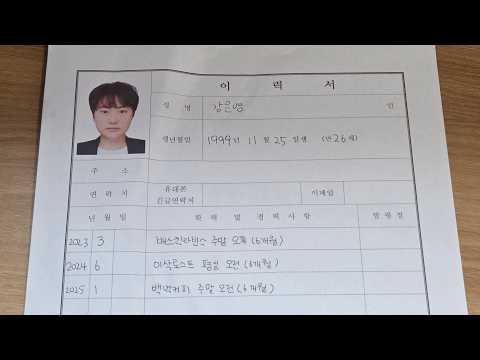 이 력 서
성 명 강은영 인
생년월일 1999년 11월 25일생 (만 26세)
주 소
연 락 처 휴대폰 이메일
긴급연락처
년 월 일 학 력 및 경 력 사 항 발 령 청
2023 3 배스킨라빈스 주말 오픈 (6개월)
2024 6 이삭토스트 평일 오전 (6개월)
2025 1 빽다방커피 주말 오전 (6개월)